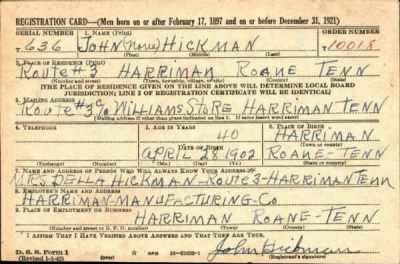 REGISTRATION CARD—(Men born on or after February 17, 1897 and on or before December 31, 1921)
SERIAL NUMBER 1. NAME (Print) ORDER NUMBER
636 JOHN (none) HICKMAN 10018
(First) (Middle) (Last)
2. PLACE OF RESIDENCE (Print)
Route #3 HARRIMAN ROANE TENN
(Number and street) (Town, township, village, or city) (County) (State)
[THE PLACE OF RESIDENCE GIVEN ON THE LINE ABOVE WILL DETERMINE LOCAL BOARD
JURISDICTION; LINE 2 OF REGISTRATION CERTIFICATE WILL BE IDENTICAL]
3. MAILING ADDRESS
Route #3 c/o WILLIAMS STORE HARRIMAN TENN
[Mailing address if other than place indicated on line 2. If same insert word same]
4. TELEPHONE 5. AGE IN YEARS 6. PLACE OF BIRTH
40 HARRIMAN
DATE OF BIRTH (Town or county)
APRIL 28 1902 ROANE-TENN
(Exchange) (Number) (Mo.) (Day) (Yr.) (State or country)
7. NAME AND ADDRESS OF PERSON WHO WILL ALWAYS KNOW YOUR ADDRESS
MRS DELLA HICKMAN-Route #3-HARRIMAN Tenn
8. EMPLOYER'S NAME AND ADDRESS
HARRIMAN-MANUFACTURING-Co
9. PLACE OF EMPLOYMENT OR BUSINESS
HARRIMAN ROANE-TENN
(Number and street or R. F. D. number) (Town) (County) (State)
I AFFIRM THAT I HAVE VERIFIED ABOVE ANSWERS AND THAT THEY ARE TRUE.
D. S. S. Form 1
(Revised 1-1-42) GPO 16—21630-1
John Hickman
(Registrant's signature)